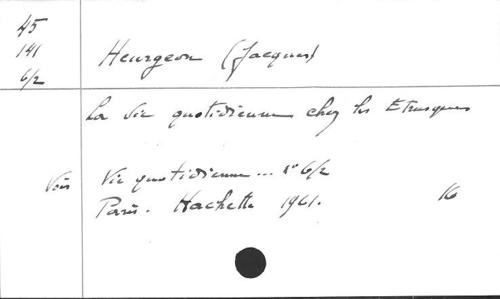 45
141
6/2
Heurgeon (Jacques)
La Vie quotidienne chez les Etrusques
Voir Vie quotidienne... n° 6/2
Paris. Hachette 1961. 16